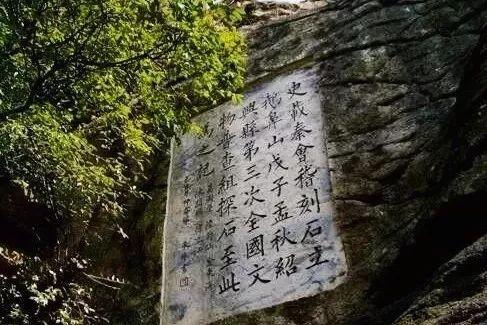 史載秦會稽刻石王
鵝鼻山戊子孟秋紹
興縣第三次全國文
物普查組探石至此
為之記